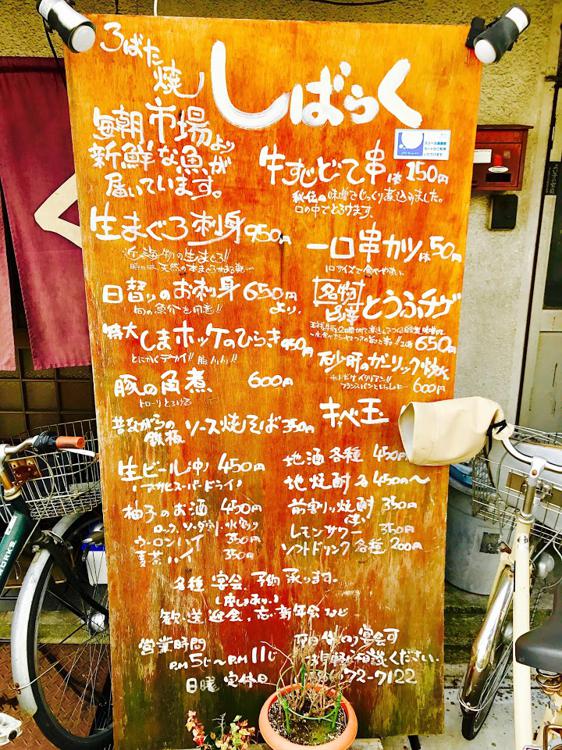 ろばた焼
しばらく
毎朝市場より
新鮮な魚が
届いています。
牛すじどて串 150円
秘伝の味噌でじっくり煮込みました。
口の中でとろけます。
生まぐろ刺身 950円
一口串カツ 50円
1口サイズで食べやすい
日替りのお刺身 650円より
名物
とうふチゲ
650円
特大しまホッケのひらき
とにかくデカイ!!
ガーリック
600円
豚の角煮 600円
トローリとろける
昔ながらの鉄板ソース焼そば 350円
キャベ玉
生ビール(中) 450円
アサヒスーパードライ
地酒各種 450円
地焼酎各 450円〜
柚子のお酒 450円
ロック、ソーダ割り、水割り
前割り焼酎 350円
ウーロンハイ 350円
レモンサワー 350円
麦茶ハイ 350円
ソフトドリンク各種 200円
各種宴会、予約承ります。
歓送迎会、忘・新年会など
営業時間
P.M 5じ〜P.M 11じ
日曜定休日
相談ください。
72-7122